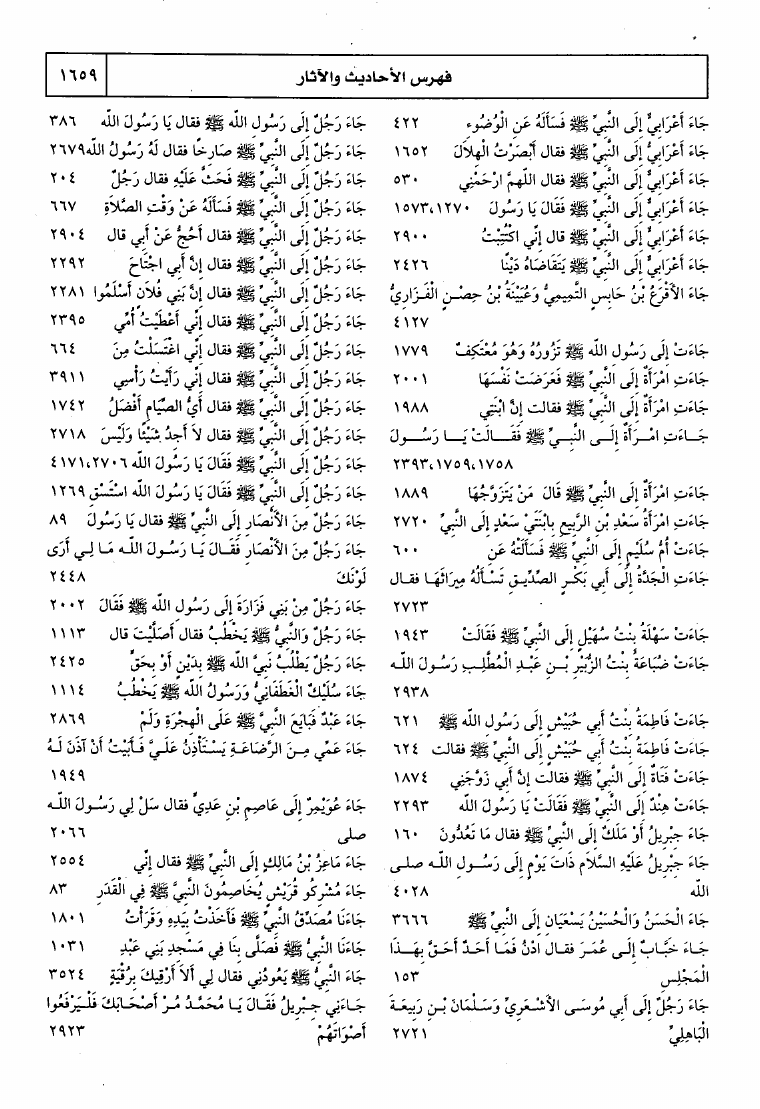 فهرس الأحاديث والآثار
١٦٥٩
جَاءَ أَعْرَابِيٌّ إِلَى النَّبِيِّ ﷺ فَسَأَلَهُ عَنِ الْوُضُوءِ ٤٢٢
جَاءَ أَعْرَابِيٌّ إِلَى النَّبِيِّ ﷺ فقال أَبْصَرْتُ الْهِلَالَ ١٦٥٢
جَاءَ أَعْرَابِيٌّ إِلَى النَّبِيِّ ﷺ فقال اللهمَّ ارْحَمْنِي ٥٣٠
جَاءَ أَعْرَابِيٌّ إِلَى النَّبِيِّ ﷺ فَقَالَ يَا رَسُولَ ١٥٧٣،١٢٧٠
جَاءَ أَعْرَابِيٌّ إِلَى النَّبِيِّ ﷺ قال إِنِّي اكْتُتِبْتُ ٢٩٠٠
جَاءَ أَعْرَابِيٌّ إِلَى النَّبِيِّ ﷺ يَتَقَاضَاهُ دَيْنًا ٢٤٢٦
جَاءَ الأَقْرَعُ بْنُ حَابِسٍ التَّمِيمِيُّ وَعُيَيْنَةُ بْنُ حِصْنٍ الْفَزَارِيُّ
٤١٢٧
جَاءَتْ إِلَى رَسُولِ الله ﷺ تَزُورُهُ وَهُوَ مُعْتَكِفٌ ١٧٧٩
جَاءَتِ امْرَأَةٌ إِلَى النَّبِيِّ ﷺ فَعَرَضَتْ نَفْسَهَا ٢٠٠١
جَاءَتِ امْرَأَةٌ إِلَى النَّبِيِّ ﷺ فقالت إِنَّ ابْنَتِي ١٩٨٨
جَاءَتِ امْرَأَةٌ إِلَى النَّبِيِّ ﷺ فَقَالَتْ يَا رَسُولَ
٢٣٩٣،١٧٥٩،١٧٥٨
جَاءَتِ امْرَأَةٌ إِلَى النَّبِيِّ ﷺ قَالَ مَنْ يَتَزَوَّجُهَا ١٨٨٩
جَاءَتِ امْرَأَةُ سَعْدِ بْنِ الرَّبِيعِ بِابْنَتَيْ سَعْدٍ إِلَى النَّبِيِّ ٢٧٢٠
جَاءَتْ أُمُّ سُلَيْمٍ إِلَى النَّبِيِّ ﷺ فَسَأَلَتْهُ عَنِ ٦٠٠
جَاءَتِ الْجَدَّةُ إِلَى أَبِي بَكْرٍ الصِّدِّيقِ تَسْأَلُهُ مِيرَاثَهَا فقال
٢٧٢٣
جَاءَتْ سَهْلَةُ بِنْتُ سُهَيْلٍ إِلَى النَّبِيِّ ﷺ فَقَالَتْ ١٩٤٣
جَاءَتْ ضُبَاعَةُ بِنْتُ الزُّبَيْرِ بْنِ عَبْدِ الْمُطَّلِبِ رَسُولَ الله
٢٩٣٨
جَاءَتْ فَاطِمَةُ بِنْتُ أَبِي حُبَيْشٍ إِلَى رَسُولِ الله ﷺ ٦٢١
جَاءَتْ فَاطِمَةُ بِنْتُ أَبِي حُبَيْشٍ إِلَى النَّبِيِّ ﷺ فقالت ٦٢٤
جَاءَتْ فَتَاةٌ إِلَى النَّبِيِّ ﷺ فقالت إِنَّ أَبِي زَوَّجَنِي ١٨٧٤
جَاءَتْ هِنْدٌ إِلَى النَّبِيِّ ﷺ فَقَالَتْ يَا رَسُولَ الله ٢٢٩٣
جَاءَ جِبْرِيلُ أَوْ مَلَكٌ إِلَى النَّبِيِّ ﷺ فقال مَا تَعُدُّونَ ١٦٠
جَاءَ جِبْرِيلُ عَلَيْهِ السَّلَام ذَاتَ يَوْمٍ إِلَى رَسُولِ الله صلى
الله ٤٠٢٨
جَاءَ الْحَسَنُ وَالْحُسَيْنُ يَسْعَيَانِ إِلَى النَّبِيِّ ﷺ ٣٦٦٦
جَاءَ خَبَّابٌ إِلَى عُمَرَ فقال ادْنُ فَمَا أَحَدٌ أَحَقَّ بِهَذَا
الْمَجْلِسِ ١٥٣
جَاءَ رَجُلٌ إِلَى أَبِي مُوسَى الأَشْعَرِيِّ وَسَلْمَانَ بْنِ رَبِيعَةَ
الْبَاهِلِيِّ ٢٧٢١
جَاءَ رَجُلٌ إِلَى رَسُولِ الله ﷺ فقال يَا رَسُولَ الله ٣٨٦
جَاءَ رَجُلٌ إِلَى النَّبِيِّ ﷺ صَارِخًا فقال لَهُ رَسُولُ الله ٢٦٧٩
جَاءَ رَجُلٌ إِلَى النَّبِيِّ ﷺ فَحَثَّ عَلَيْهِ فقال رَجُلٌ ٢٠٤
جَاءَ رَجُلٌ إِلَى النَّبِيِّ ﷺ فَسَأَلَهُ عَنْ وَقْتِ الصَّلَاةِ ٦٦٧
جَاءَ رَجُلٌ إِلَى النَّبِيِّ ﷺ فقال أَحُجُّ عَنْ أَبِي قال ٢٩٠٤
جَاءَ رَجُلٌ إِلَى النَّبِيِّ ﷺ فقال إِنَّ أَبِي اجْتَاحَ ٢٢٩٢
جَاءَ رَجُلٌ إِلَى النَّبِيِّ ﷺ فقال إِنَّ بَنِي فُلَانٍ أَسْلَمُوا ٢٢٨١
جَاءَ رَجُلٌ إِلَى النَّبِيِّ ﷺ فقال إِنِّي أَعْطَيْتُ أُمِّي ٢٣٩٥
جَاءَ رَجُلٌ إِلَى النَّبِيِّ ﷺ فقال إِنِّي اغْتَسَلْتُ مِنَ ٦٦٤
جَاءَ رَجُلٌ إِلَى النَّبِيِّ ﷺ فقال إِنِّي رَأَيْتُ رَأْسِي ٣٩١١
جَاءَ رَجُلٌ إِلَى النَّبِيِّ ﷺ فقال أَيُّ الصِّيَامِ أَفْضَلُ ١٧٤٢
جَاءَ رَجُلٌ إِلَى النَّبِيِّ ﷺ فقال لَا أَجِدُ شَيْئًا وَلَيْسَ ٢٧١٨
جَاءَ رَجُلٌ إِلَى النَّبِيِّ ﷺ فَقَالَ يَا رَسُولَ الله ٤١٧١،٢٧٠٦
جَاءَ رَجُلٌ إِلَى النَّبِيِّ ﷺ فَقَالَ يَا رَسُولَ الله اسْتَسْقِ ١٢٦٩
جَاءَ رَجُلٌ مِنَ الأَنْصَارِ إِلَى النَّبِيِّ ﷺ فقال يَا رَسُولَ ٨٩
جَاءَ رَجُلٌ مِنَ الأَنْصَارِ فَقَالَ يَا رَسُولَ الله مَا لِي أَرَى
لَوْنَكَ ٢٤٤٨
جَاءَ رَجُلٌ مِنْ بَنِي فَزَارَةَ إِلَى رَسُولِ الله ﷺ فَقَالَ ٢٠٠٢
جَاءَ رَجُلٌ وَالنَّبِيُّ ﷺ يَخْطُبُ فقال أَصَلَّيْتَ قال ١١١٣
جَاءَ رَجُلٌ يَطْلُبُ نَبِيَّ الله ﷺ بِدَيْنٍ أَوْ بِحَقٍّ ٢٤٢٥
جَاءَ سُلَيْكٌ الْغَطَفَانِيُّ وَرَسُولُ الله ﷺ يَخْطُبُ ١١١٤
جَاءَ عَبْدٌ فَبَايَعَ النَّبِيَّ ﷺ عَلَى الْهِجْرَةِ وَلَمْ ٢٨٦٩
جَاءَ عَمِّي مِنَ الرَّضَاعَةِ يَسْتَأْذِنُ عَلَيَّ فَأَبَيْتُ أَنْ آذَنَ لَهُ
١٩٤٩
جَاءَ عُوَيْمِرٌ إِلَى عَاصِمِ بْنِ عَدِيٍّ فقال سَلْ لِي رَسُولَ الله
صلى ٢٠٦٦
جَاءَ مَاعِزُ بْنُ مَالِكٍ إِلَى النَّبِيِّ ﷺ فقال إِنِّي ٢٥٥٤
جَاءَ مُشْرِكُو قُرَيْشٍ يُخَاصِمُونَ النَّبِيَّ ﷺ فِي الْقَدَرِ ٨٣
جَاءَنَا مُصَدِّقُ النَّبِيِّ ﷺ فَأَخَذْتُ بِيَدِهِ وَقَرَأْتُ ١٨٠١
جَاءَنَا النَّبِيُّ ﷺ فَصَلَّى بِنَا فِي مَسْجِدِ بَنِي عَبْدِ ١٠٣١
جَاءَ النَّبِيُّ ﷺ يَعُودُنِي فقال لِي أَلَا أَرْقِيكَ بِرُقْيَةٍ ٣٥٢٤
جَاءَنِي جِبْرِيلُ فَقَالَ يَا مُحَمَّدُ مُرْ أَصْحَابَكَ فَلْيَرْفَعُوا
أَصْوَاتَهُمْ ٢٩٢٣